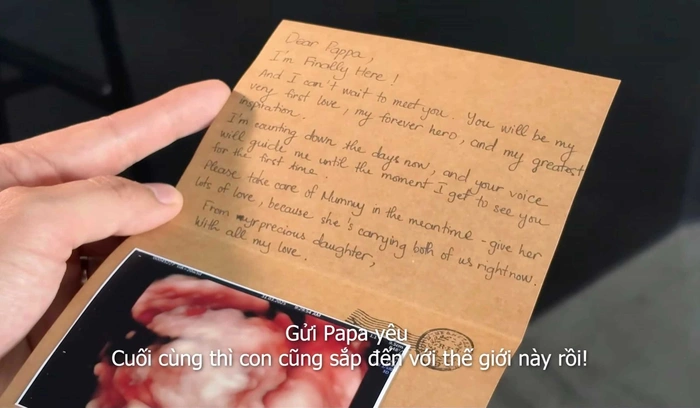 Dear Pappa,
I'm Finally Here!
And I can't wait to meet you. You will be my
very first love, my forever hero, and my greatest
inspiration.
I'm counting down the days now, and your voice
will guide me until the moment I get to see you
for the first time.
Please take care of Mummy in the meantime - give her
lots of love, because she's carrying both of us right now.
From your precious daughter,
With all my love.
Gửi Papa yêu
Cuối cùng thì con cũng sắp đến với thế giới này rồi!